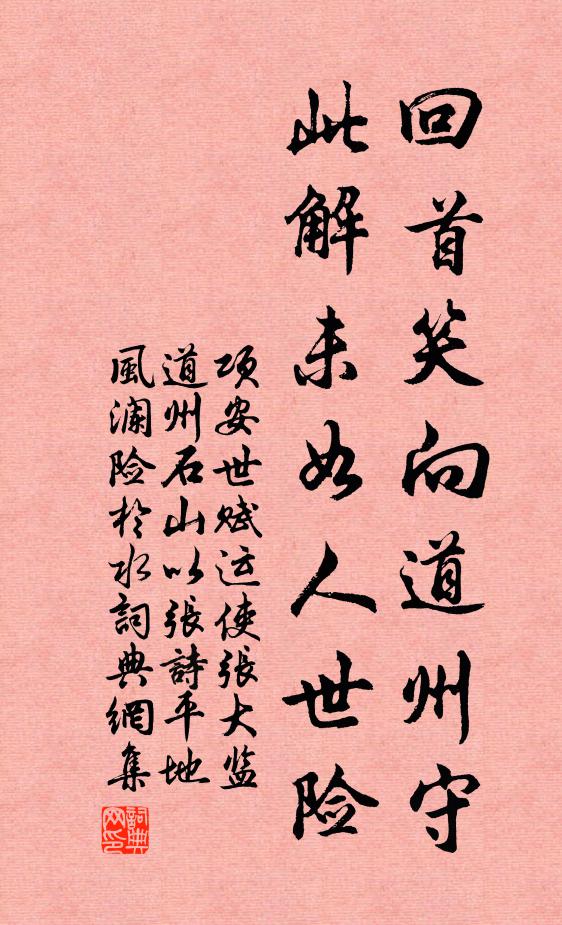 回首笑向道州守
此解未如人世险
项安世赋运使张大监
道州石山以張詩平地
風澜险於水詞典網集
詞典网印